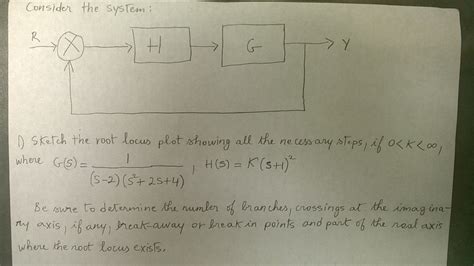 Consider the system:
R H G Y
1) Sketch the root locus plot showing all the necessary steps, if 0<K<∞,
where G(s) = 1 / (s-2)(s²+2s+4) , H(s) = K(s+1)²
Be sure to determine the number of branches, crossings at the imagina-
ry axis, if any, break-away or break in points and part of the real axis
where the root locus exists.